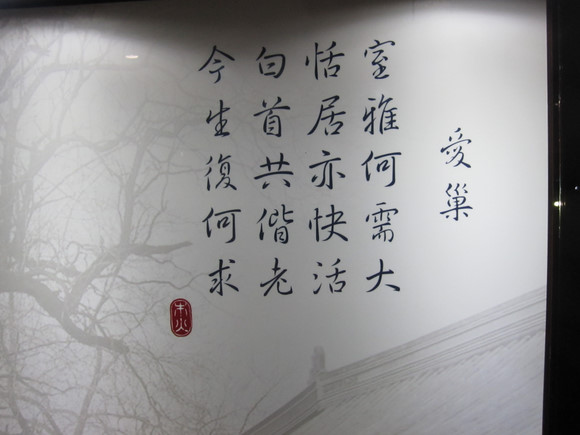 愛巢
室雅何需大
恬居亦快活
白首共偕老
今生復何求